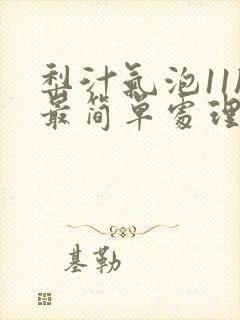 梨汁氣泡11
最简单處理
基勒